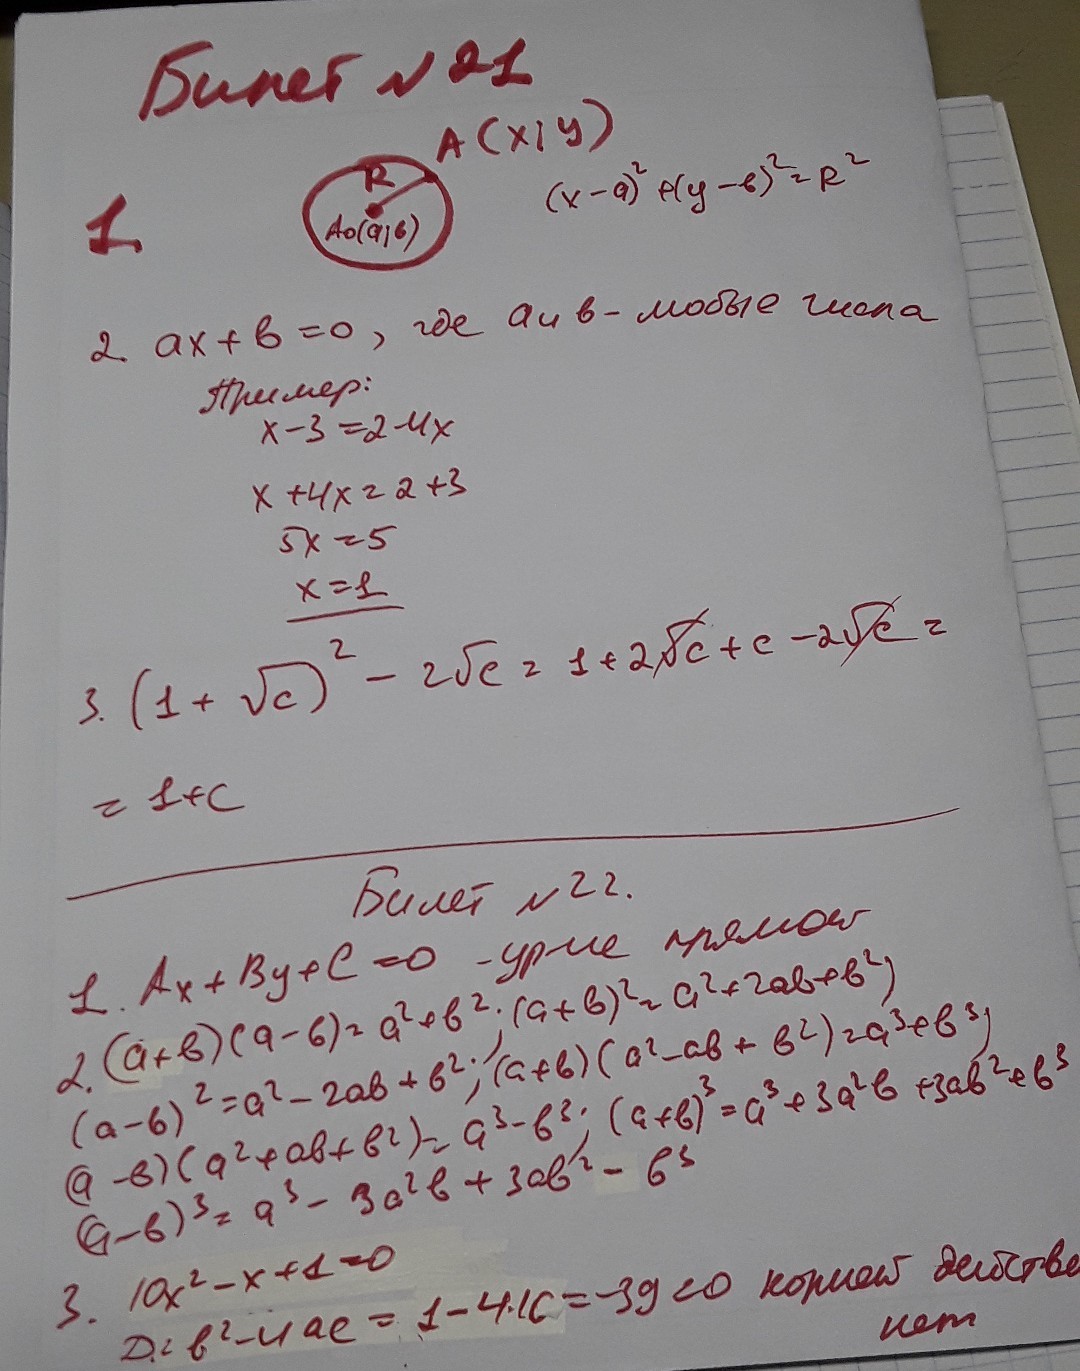 Билет №21
A(x;y)
R
A₀(a;в)
(x-a)²+(y-в)²=R²
1.
2. ax+в=0, где a и в - любые числа
Пример:
x-3=2-4x
x+4x=2+3
5x=5
x=1
3. (1+√c)²-2√c=1+2√c+c-2√c=
=1+c
Билет №22.
1. Ax+By+C=0 -ур-ие прямой
2. (a+в)(a-в)=a²+в²; (a+в)²=a²+2aв+в²;
(a-в)²=a²-2aв+в²; (a+в)(a²-aв+в²)=a³+в³;
(a-в)(a²+aв+в²)=a³-в³; (a+в)³=a³+3a²в+3aв²+в³
(a-в)³=a³-3a²в+3aв²-в³
3. 10x²-x+1=0
D=в²-4ac=1-4·10=-39<0 корней действ
нет